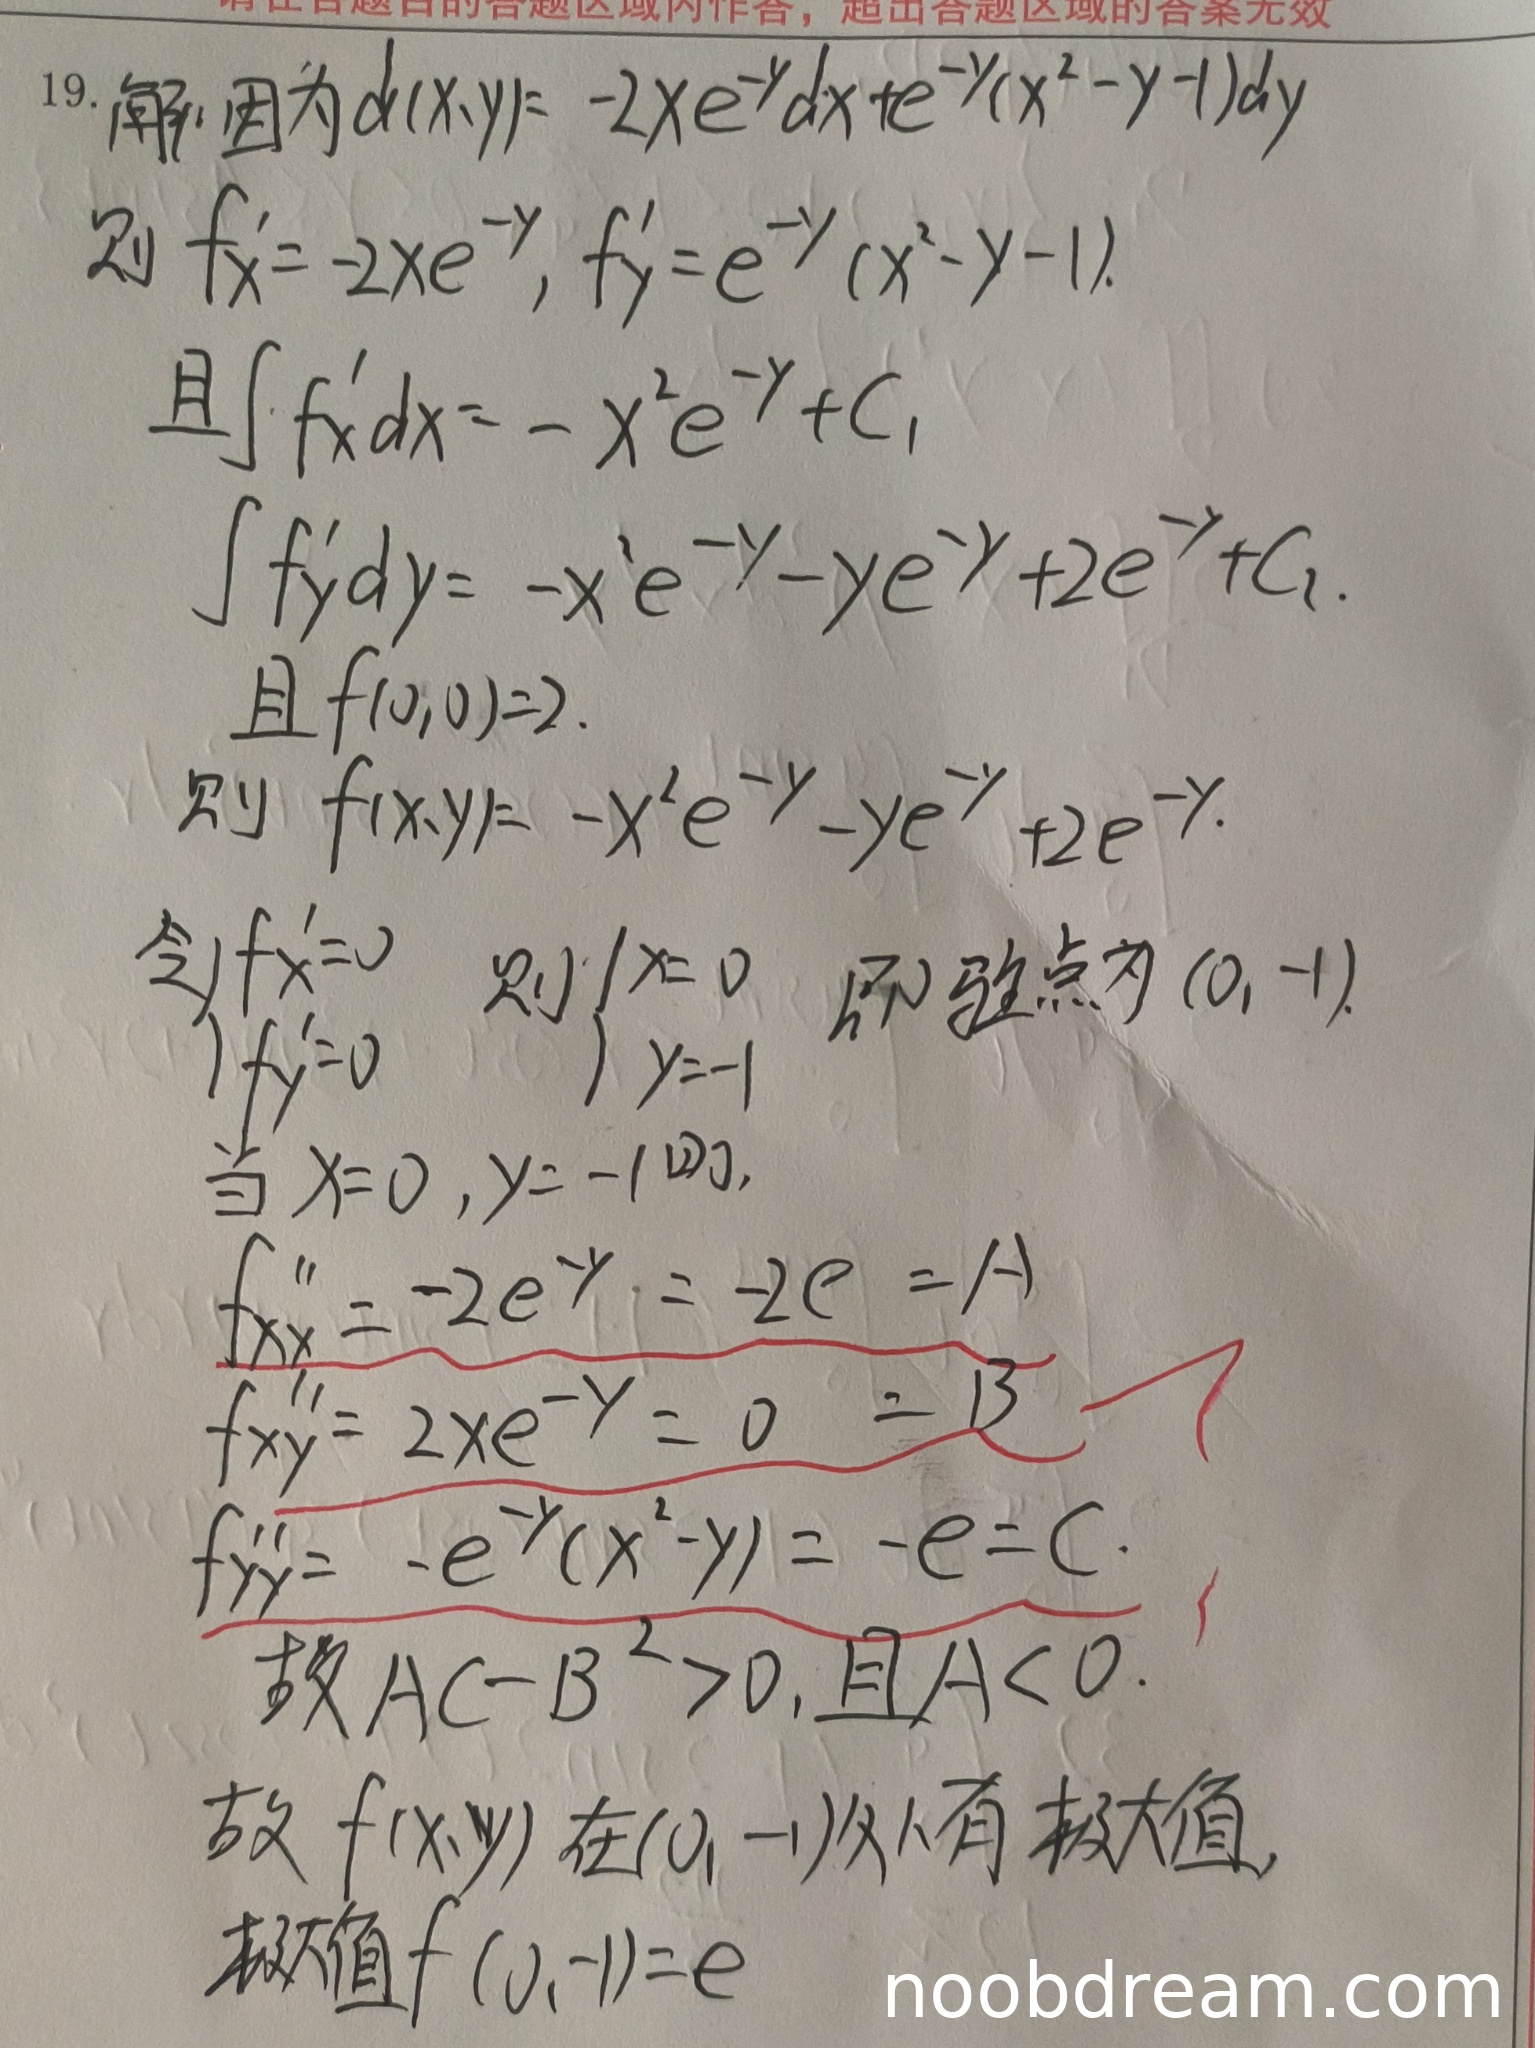 请在各题目的答题区域内作答，超出答题区域的答案无效
19. 解：因为d(x、y)= -2xe^{-y}dx+e^{-y}(x²-y-1)dy
则 fx'= -2xe^{-y}, fy'=e^{-y}(x²-y-1).
且∫fx'dx= -x²e^{-y}+C₁
∫fy'dy= -x²e^{-y}-ye^{-y}+2e^{-y}+C₂.
且f(0,0)=2.
则 f(x、y)= -x²e^{-y}-ye^{-y}+2e^{-y}.
令{fx'=0 则{x=0 即驻点为(0,-1).
fy'=0 y=-1
当 x=0, y=-1时,
fxx''= -2e^{-y} = -2e =A
fxy''= 2xe^{-y} = 0 =B
fyy''= -e^{-y}(x²-y) = -e=C.
故AC-B²>0,且A<0.
故 f(x、y)在(0,-1)处有极大值,
极大值f(0,-1)=e
noobdream.com